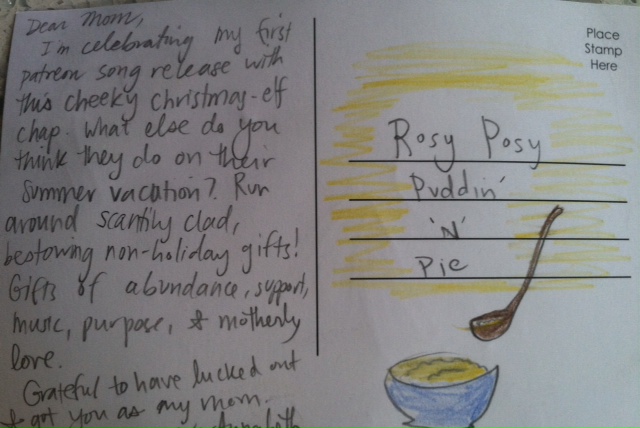 Dear Mom,
I'm celebrating my first
patreon song release with
this cheeky christmas-elf
chap. What else do you
think they do on their
summer vacation? Run
around scantily clad,
bestowing non-holiday gifts!
Gifts of abundance, support,
music, purpose, & motherly
love.
Grateful to have lucked out
& got you as my mom.
Place
Stamp
Here
Rosy Posy
Puddin'
'N'
Pie